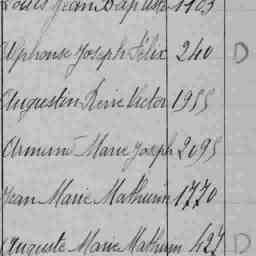 Louis Jean Baptiste 1103
Alphonse Joseph Félix 240 D
Augustin René Victor 1955
Armand Marie Joseph 2095
Jean Marie Mathurin 1770
Auguste Marie Mathurin 427 D